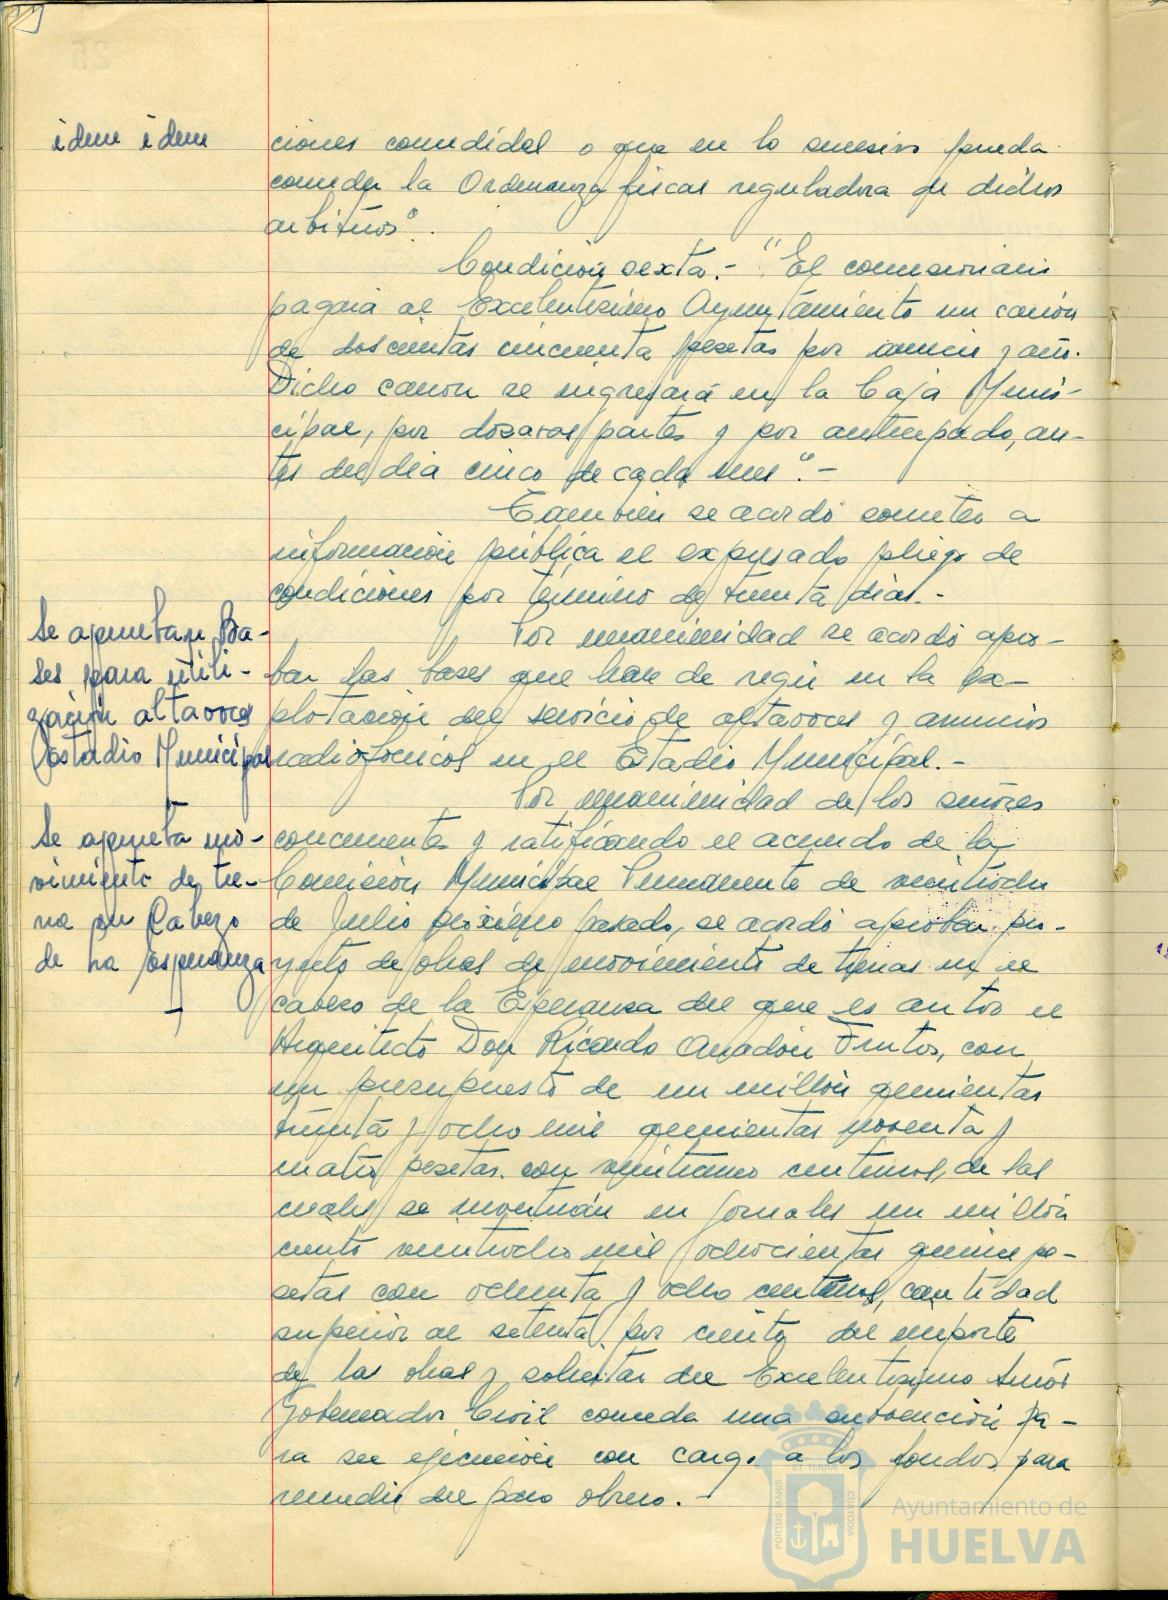 idem idem
ciones concedidas o que en lo sucesivo pueda
conceder la Ordenanza fiscal reguladora de dichos
arbitrios".
Condición sexta.- "El concesionario
pagará al Excelentísimo Ayuntamiento un canón
de doscientas cincuenta pesetas por anuncio y año.
Dicho canon se ingresará en la Caja Muni-
cipal, por dozavas partes y por anticipado, an-
tes del día cinco de cada mes".-
También se acordó someter a
información pública el expresado pliego de
condiciones por término de treinta días.-
Se aprueban Ba-
ses para utili-
zación altavoces
Estadio Municipal
Por unanimidad se acordó apro-
bar las bases que han de regir en la ex-
plotación del servicio de altavoces y anuncios
radiofónicos en el Estadio Municipal.-
Se aprueba mo-
vimiento de tie-
rra en Cabezo
de La Esperanza
Por unanimidad de los señores
concurrentes y ratificando el acuerdo de la
Comisión Municipal Permanente de veintiocho
de Julio próximo pasado, se acordó aprobar pro-
yecto de obras de movimiento de tierras en el
cabezo de la Esperanza del que es autor el
Arquitecto Don Ricardo Anadón Frutos, con
un presupuesto de un millón quinientas
treinta y ocho mil quinientas noventa y
cuatro pesetas con veinticinco centimos, de las
cuales se invertirán en jornales un millón
ciento veintiocho mil ochocientas quince pe-
setas con ochenta y ocho centimos, cantidad
superior al setenta por ciento del importe
de las obras y solicitar del Excelentísimo Señor
Gobernador Civil conceda una subvención pa-
ra su ejecución con cargo a los fondos para
remedio del paro obrero.-
PORTUS MARIS
ET TERRAE
CUSTODIA
Ayuntamiento de
HUELVA